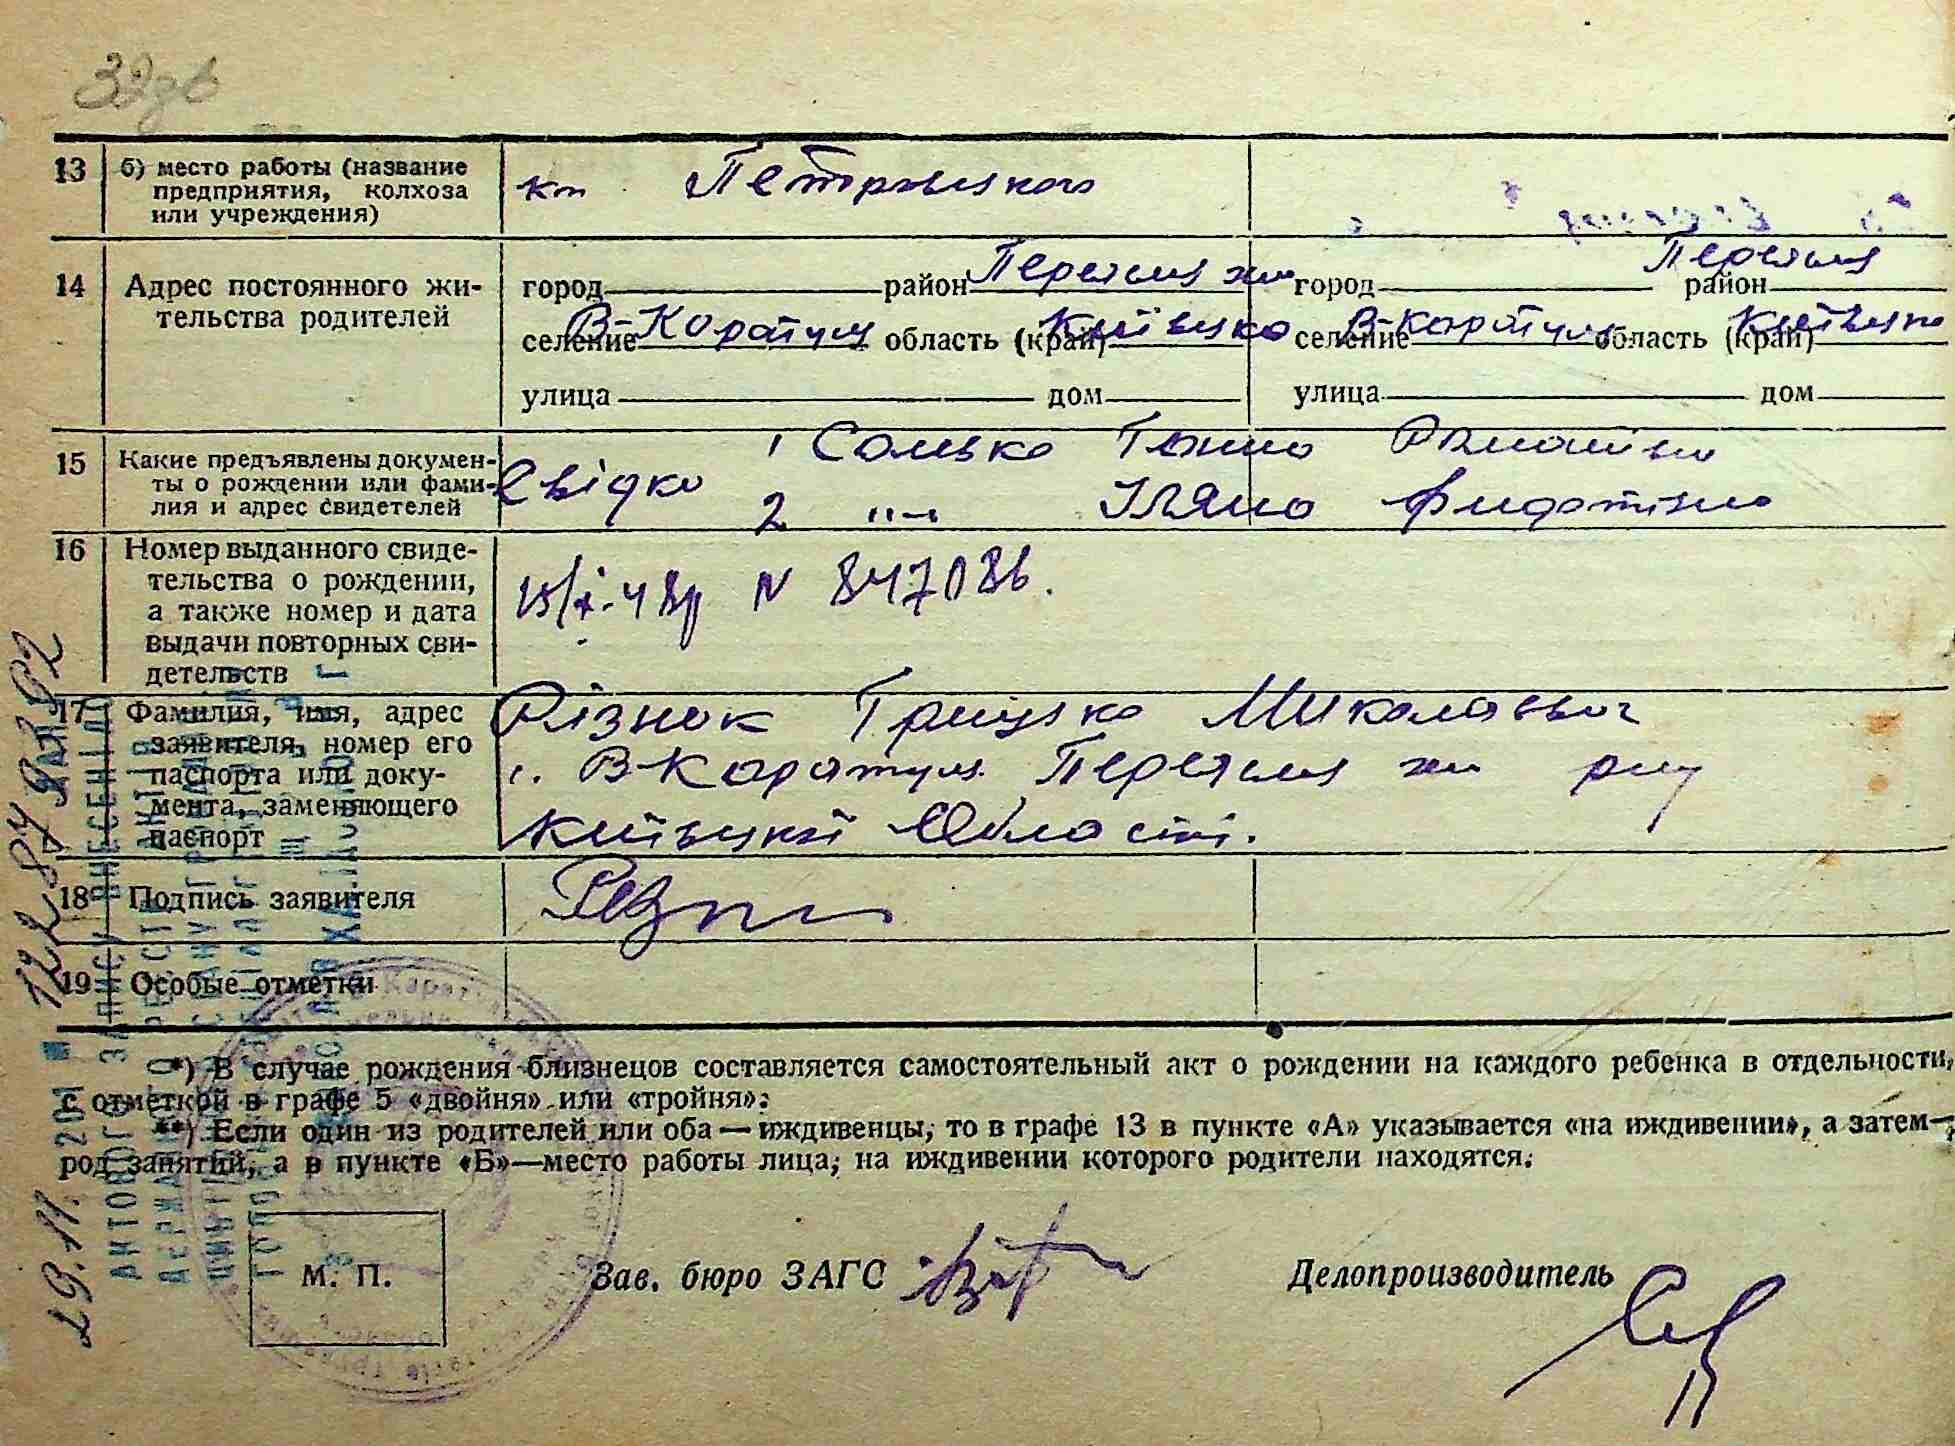 32зв
13 б) место работы (название
предприятия, колхоза
или учреждения)
кп Петровського
14 Адрес постоянного жи-
тельства родителей
город район Переяслав хм
селение В-Каратул область (край) Київсько
улица дом
город район Переяслав
селение В-Каратул область (край) Київсько
улица дом
15 Какие предъявлены докумен-
ты о рождении или фами-
лия и адрес свидетелей
Свідки 1 Солько Ганна
2 "–" Уляна
16 Номер выданного свиде-
тельства о рождении,
а также номер и дата
выдачи повторных сви-
детельств
15/X-48р N 847086.
17 Фамилия, имя, адрес
заявителя, номер его
паспорта или доку-
мента, заменяющего
паспорт
Різник Грицько Миколаевич
с. В Каратул Переяслав хм р-ну
Київської Області.
18 Подпись заявителя
19 Особые отметки
*) В случае рождения близнецов составляется самостоятельный акт о рождении на каждого ребенка в отдельности,
с отметкой в графе 5 «двойня» или «тройня»;
**) Если один из родителей или оба — иждивенцы, то в графе 13 в пункте «А» указывается «на иждивении», а затем—
род занятий, а в пункте «Б»—место работы лица, на иждивении которого родители находятся.
М. П.
Зав. бюро ЗАГС
Делопроизводитель
29.11.201
АКТОВОГО ЗАПИСУ ВНЕСЕНІ ДО